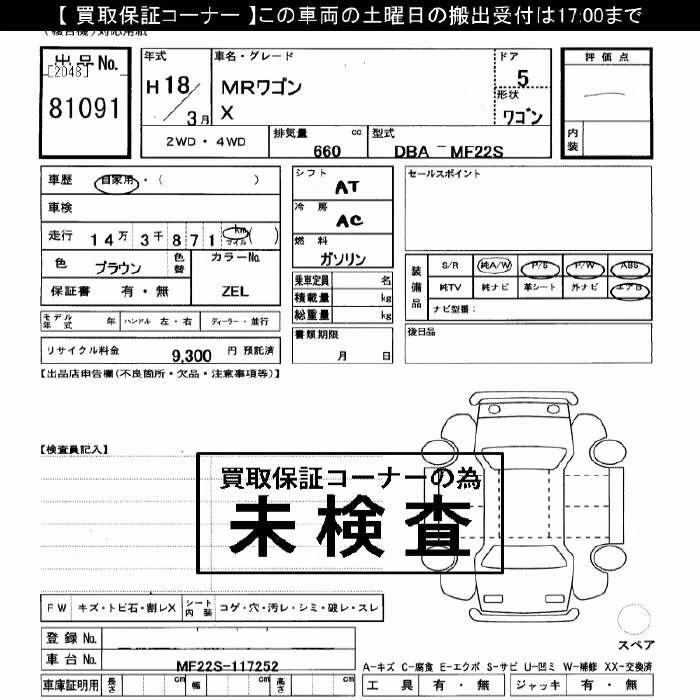 【 買取保証コーナー 】この車両の土曜日の搬出受付は17:00まで
出品No.
[2048]
81091
年式
H18/3月
車名・グレード
MRワゴン
X
ドア
5
形状
ワゴン
評価点
内装
2WD・4WD
排気量 cc
660
型式
DBA－MF22S
車歴 自家用・( )
車検
走行 14万3千871 km マイル ( )
色 ブラウン 色替
カラーNo.
ZEL
保証書 有・無
シフト
AT
冷房
AC
燃料
ガソリン
乗車定員 名
積載量 kg
総重量 kg
書類期限
月 日
セールスポイント
装備品
S/R 純A/W P/S P/W ABS
純TV 純ナビ 革シート 外ナビ エアB
ナビ型番：
後日品
モデル年式 年 ハンドル 左・右 ディーラー・並行
リサイクル料金 9,300 円 預託済
【出品店申告欄(不良箇所・欠品・注意事項等)】
【検査員記入】
買取保証コーナーの為
未検査
FW キズ・トビ石・割レX シート内装 コゲ・穴・汚レ・シミ・破レ・スレ
登録No.
車台No. MF22S-117252
車庫証明用 長さ cm 幅 cm 高さ cm
スペア
A-キズ C-腐食 E-エクボ S-サビ U-凹ミ W-補修 XX-交換済
工具 有・無 ジャッキ 有・無